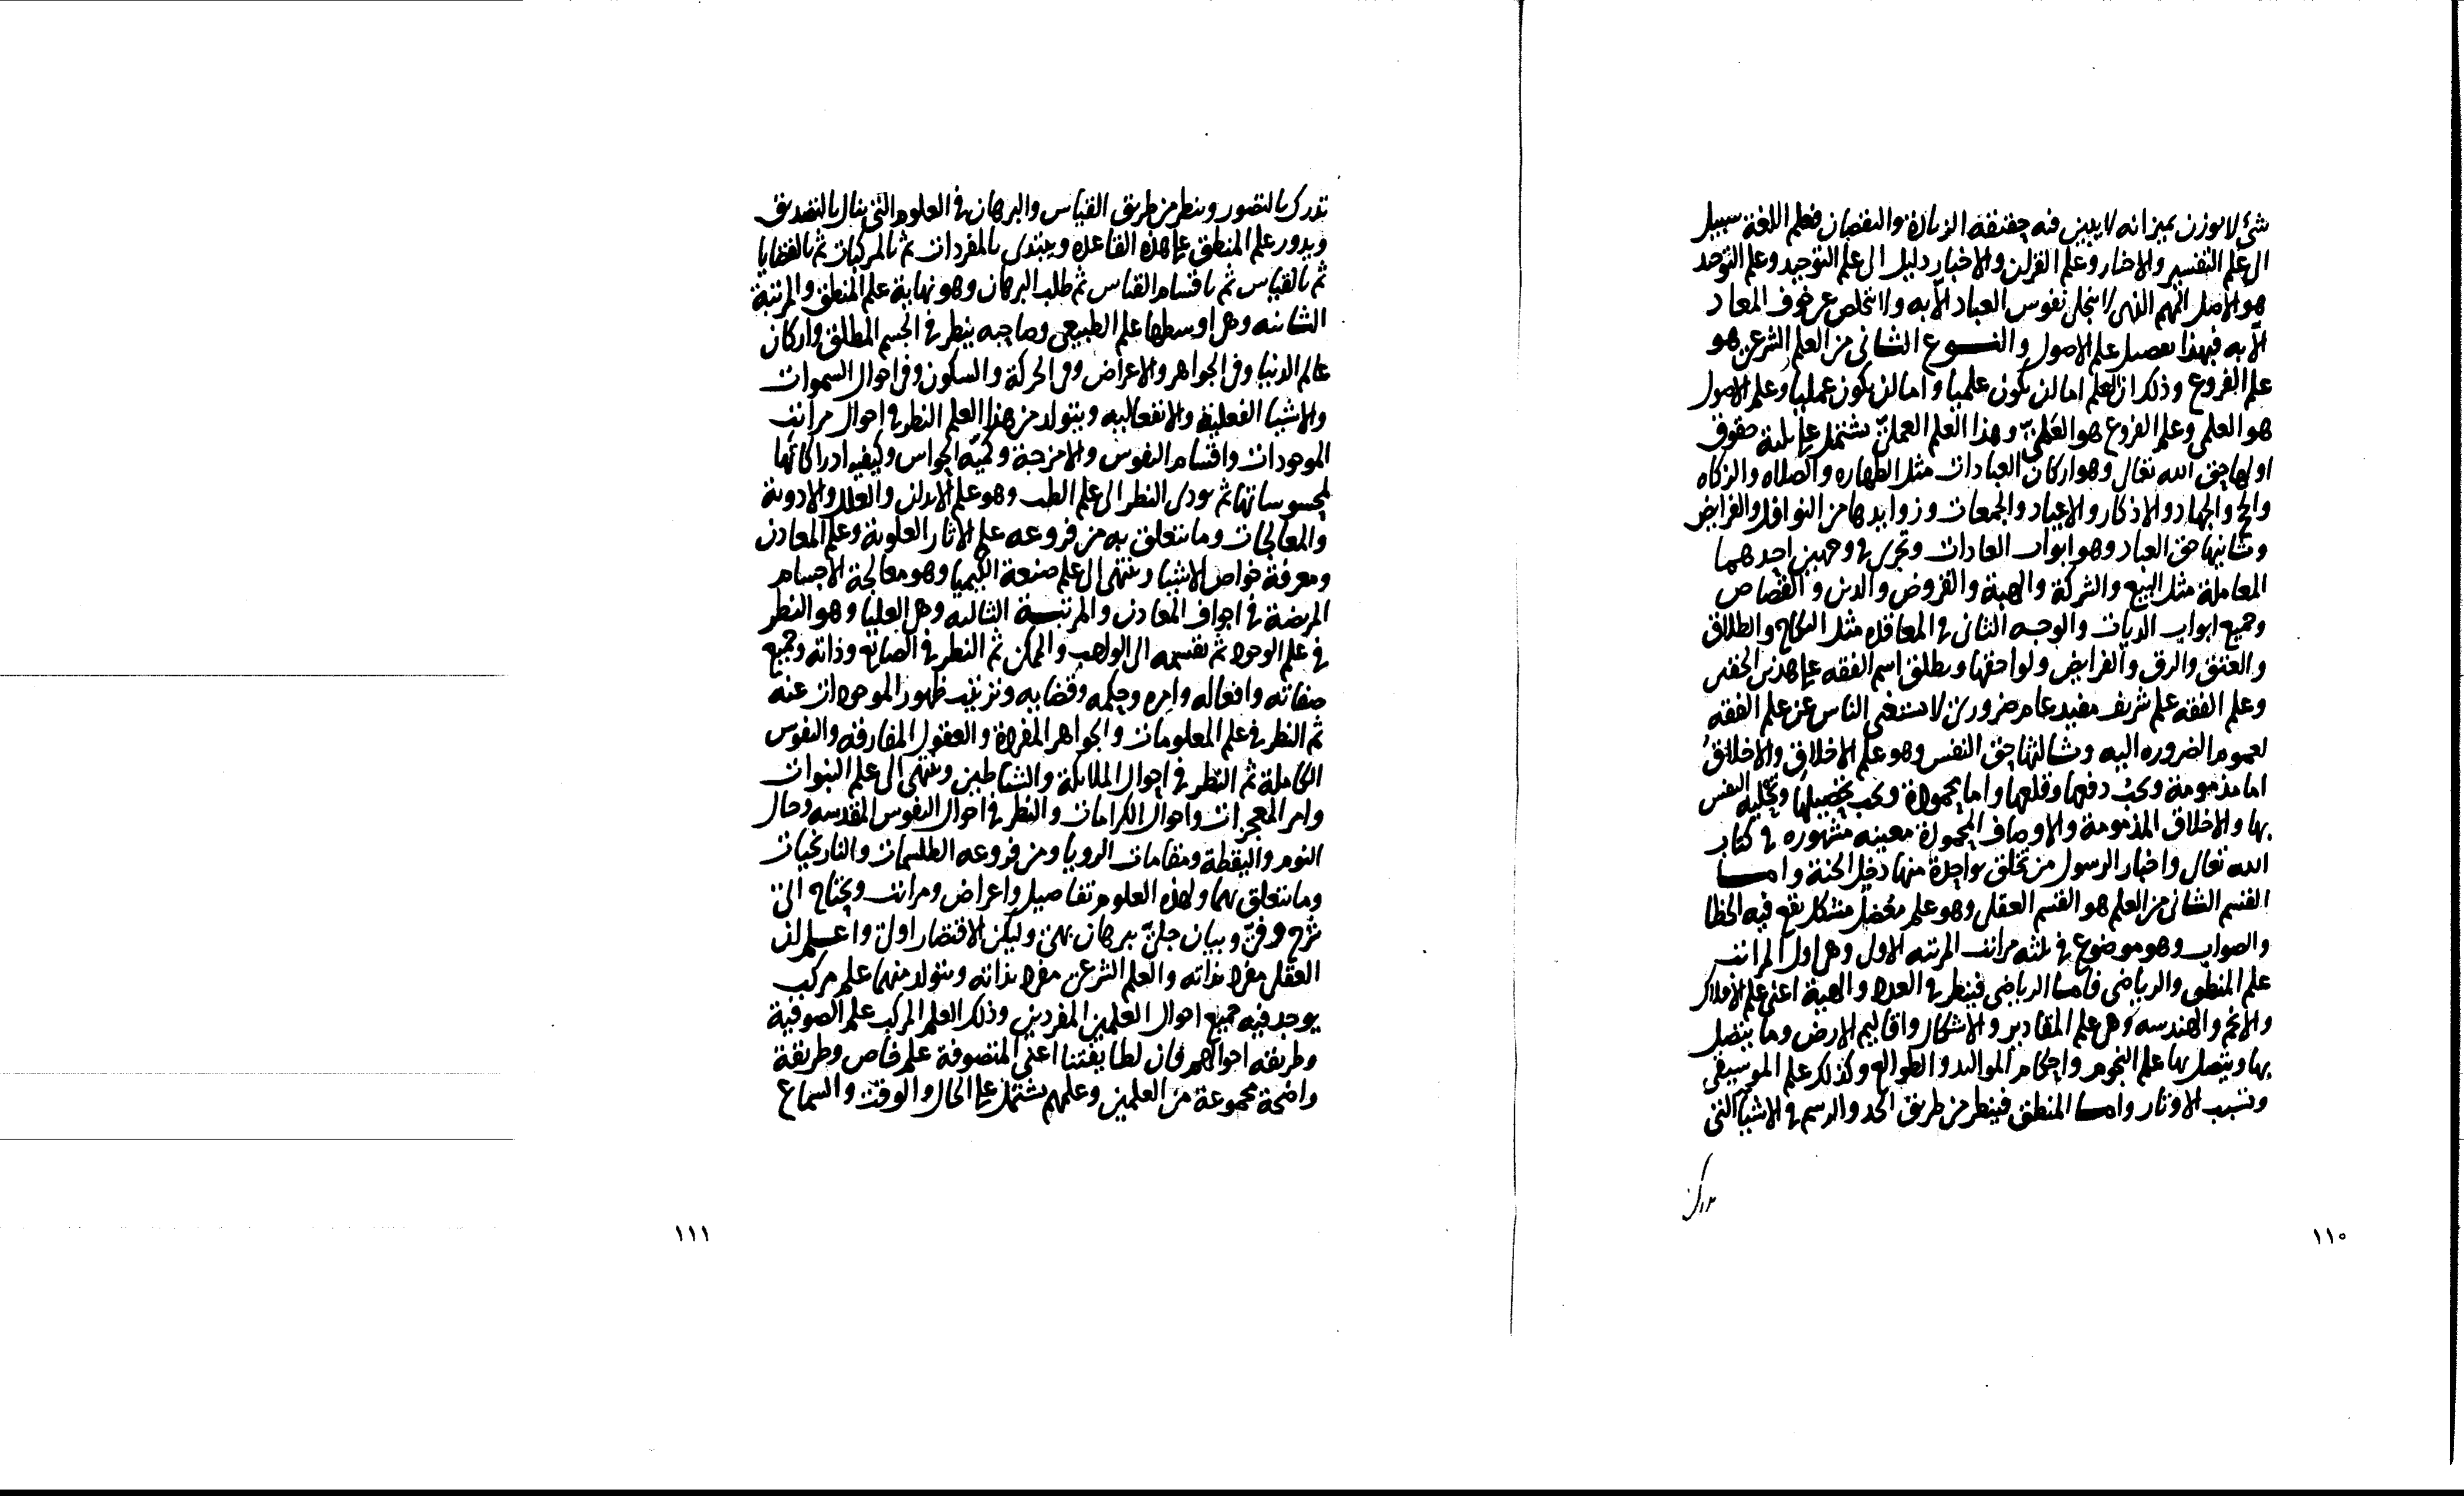 شئ لا يوزن بميزانه لا يبين فيه حقيقة الزيادة والنقصان فعلم اللغة سبيل
الى علم التفسير والاخبار وعلم القران والاخبار دليل الى علم التوحيد وعلم التوحيد
هو الاصل المهم الذى لا تنجلى نفوس العباد الا به ولا تتخلص عن خوف المعاد
الا به فهذا تفصيل علم الاصول والنـوع الثانى من العلم الشرعى هو
علم الفروع وذلك ان العلم اما ان يكون علميا واما ان يكون عمليا وعلم الاصول
هو العلمى وعلم الفروع هو العملى وهذا العلم العملى يشتمل على ثلثة حقوق
اولها حق الله تعالى وهو اركان العبادات مثل الطهاره والصلاه والزكاه
والحج والجهاد والاذكار والاعياد والجمعات وزوايدها من النوافل والفرايض
وثانيها حق العباد وهو ابواب العادات وتجرى فى وجهين احدهما
المعاملة مثل البيع والشركة والهبة والقروض والدين والقصاص
وجميع ابواب الديات والوجه الثانى فى المعاقده مثل النكاح والطلاق
والعتق والرق والفرايض ولواحقها ويطلق اسم الفقه على هذين الحقين
وعلم الفقه علم شريف مفيد عام ضرورى لا يستغنى الناس عن علم الفقه
لعموم الضروره اليه وثالثها حق النفس وهو علم الاخلاق والاخلاق
اما مذمومة ويجب دفعها وقلعها واما محمودة ويجب تحصيلها وتحلية النفس
بها والاخلاق المذمومة والاوصاف المحمودة معينه مشهوره فى كتاب
الله تعالى واخبار الرسول من تخلق بواحدة منها دخل الجنة وامـا
القسم الثانى من العلم هو القسم العقلى وهو علم معضل مشكل يقع فيه الخطا
والصواب وهو موضوع فى ثلثه مراتب المرتبه الاولى وهى اول المراتب
علم المنطق والرياضى فامـا الرياضى فينظر فى العدد والهيية اعنى علم الافلاك
والانجم والهندسه وهى علم المقادير والاشكال واقاليم الارض وما يتصل
بها ويتصل بها علم النجوم واحكام المواليد والطوالع وكذلك علم الموسيقى
ونسب الاوتار وامـا المنطق فينظر من طريق الحد والرسم فى الاشيا التى
تدرك
١١٠
تدرك بالتصور وينظر من طريق القياس والبرهان فى العلوم التى تنال بالتصديق
ويدور علم المنطق على هذه القاعده ويبتدى بالمفردات ثم بالمركبات ثم بالقضايا
ثم بالقياس ثم باقسام القياس ثم طلب البرهان وهو نهاية علم المنطق والمرتبة
الثانيه وهى اوسطها علم الطبيعى وصاحبه ينظر فى الجسم المطلق واركان
عالم الدنيا وفى الجواهر والاعراض وفى الحركة والسكون وفى احوال السموات
والاشيا الفعلية والانفعاليه ويتولد من هذا العلم النظر فى احوال مراتب
الموجودات واقسام النفوس والامزجة وكمية الحواس وكيفيه ادراكاتها
لمحسوساتها ثم يودى النظر الى علم الطب وهو علم الابدان والعلل والادوية
والمعالجات وما يتعلق به من فروعه علم الاثار العلوية وعلم المعادن
ومعرفة خواص الاشيا وينتهى الى علم صنعة الكيميا وهو معالجة الاجسام
المريضة فى اجواف المعادن والمرتبـة الثالثه وهى العليا وهو النظر
فى علم الوجود ثم تقسيمه الى الواجب والممكن ثم النظر فى الصانع وذاته وجميع
صفاته وافعاله وامره وحكمه وقضايه وترتيب ظهور الموجودات عنه
ثم النظر فى علم المعلومات والجواهر المفردة والعقول المفارقه والنفوس
الكاملة ثم النظر فى احوال الملايكة والشياطين وينتهى الى علم النبوات
وامر المعجزات واحوال الكرامات والنظر فى احوال النفوس المقدسه وحال
النوم واليقظة ومقامات الرويا ومن فروعه الطلسمات والنارنجيات
وما يتعلق بهما ولهذه العلوم تفاصيل واعراض ومراتب ويحتاج الى
شرح وفى وبيان جلى ببرهان بهى ولكن الاقتصار اولى واعـلم ان
العقلى مفرد بذاته والعلم الشرعى مفرد بذاته ويتولد منهما علم مركب
يوجد فيه جميع احوال العلمين المفردين وذلك العلم المركب علم الصوفية
وطريقه احوالهم فان لطايفتنا اعنى المتصوفة علم خاص وطريقة
واضحة مجموعة من العلمين وعلمهم يشتمل على الحال والوقت والسماع
١١١